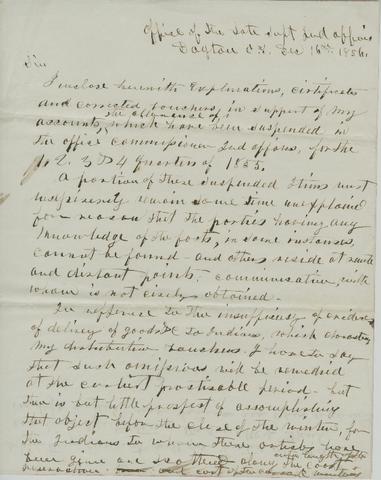 Office of the late Supt Ind Affairs
Dayton O.T. Dec 16th 1856.
Sir
I inclose herewith Explanations, Certificates
and corrected vouchers, in support of my
accounts, the allowance of which have been suspended in
the office Commissioner Ind affairs, for the
1. 2. 3 & 4 quarters of 1855.
A portion of these suspended Items must
necessarily remain some time unexplained
for reason that the parties having any
knowledge of the facts, in some instances
cannot be found - and others reside at remote
and distant points, communication, with
whom is not easily obtained.
In reference to the insufficiency of evidence
of delivery of goods &c to Indians, which
my distributive vouchers. I have to say
that such omissions will be remedied
at the earliest practicable period - but
there is but little prospect of accomplishing
that object before the close of the winter, for
the Indians to whom these articles have
been given are scattered along the Coast
reservation and